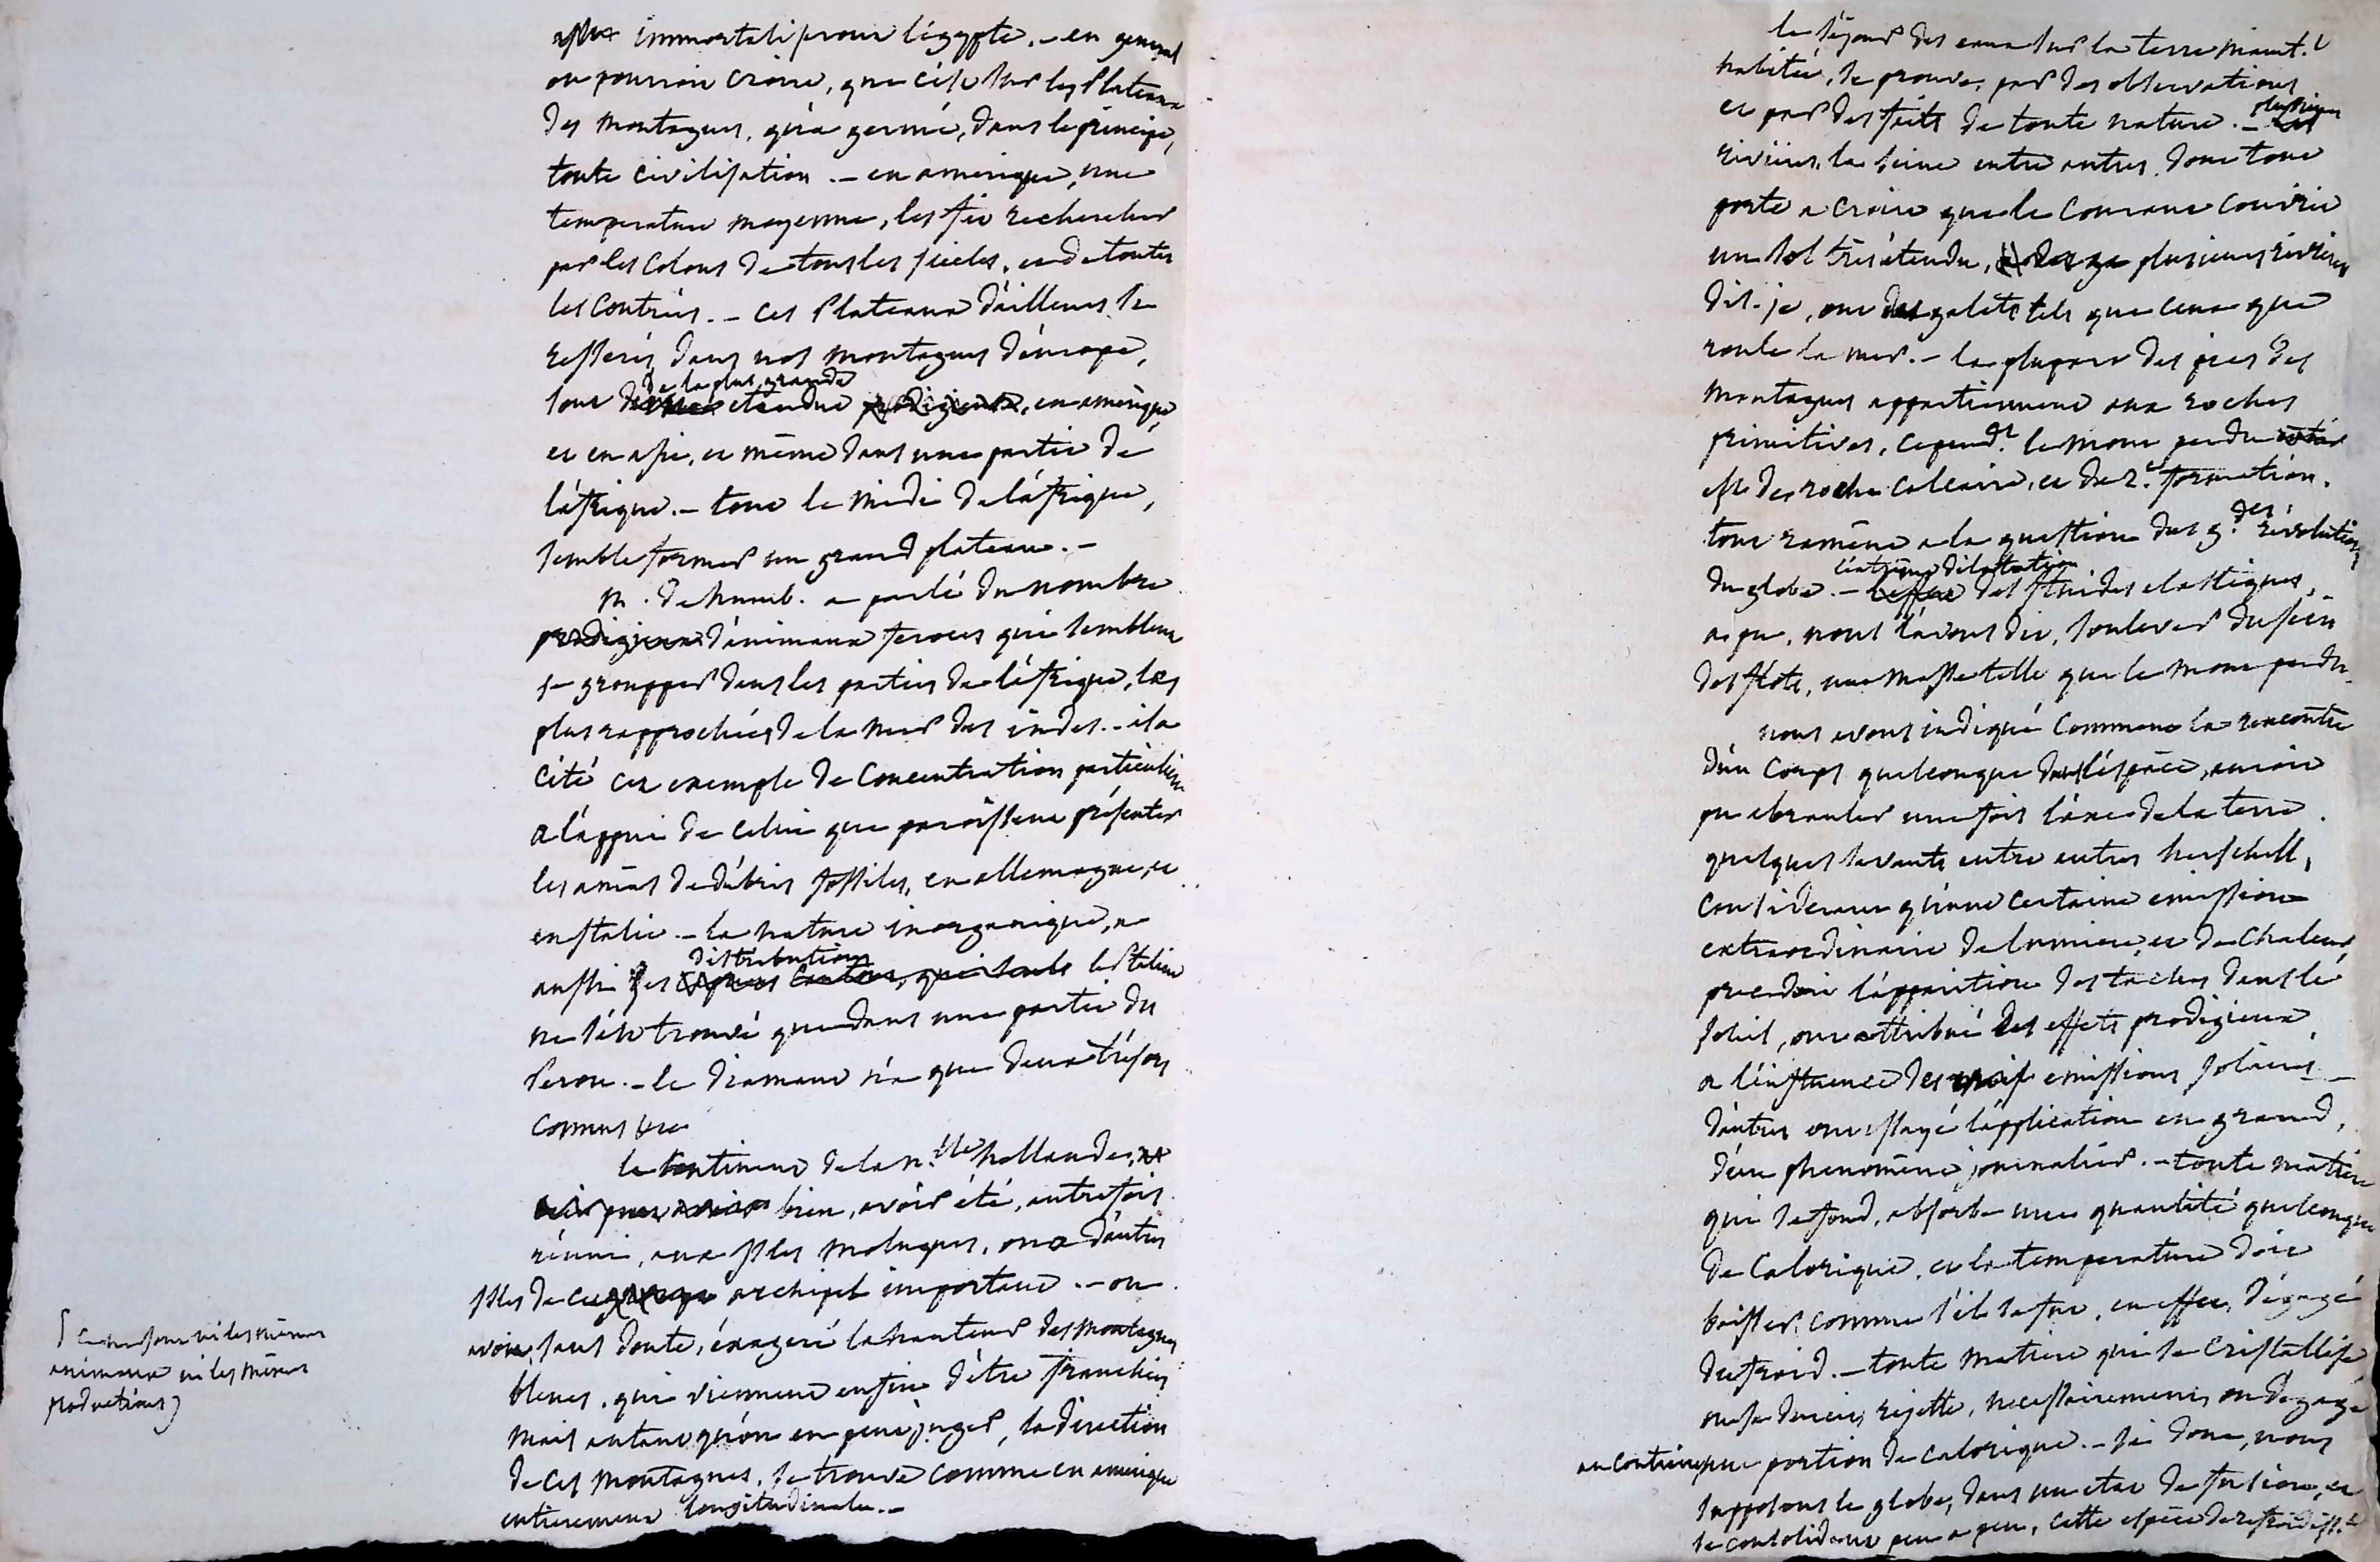 immortalisé pour l'égypte. - en general
on pourroit croire, que c'est sur les Plateaux
des montagnes, qu'a germé, dans le principe,
toute civilisation. - en amerique, une
temperature moyenne, les fit rechercher
par les Colons de tous les siecles, et de toutes
les Contrées. - ces Plateaux d'ailleurs si
resserrés dans nos montagnes d'europe,
sont de la plus grande etendue prodigieuse, en amérique,
et en asie, et même dans une partie de
l'afrique. - tout le midi de l'afrique,
semble former un grand plateau. -
M. de humb. a parlé du nombre
prodigieux d'animaux feroces qui semblent
se groupper dans les parties de l'afrique, les
plus rapprochées de la mer des indes. - il a
cité cet exemple de Concentration particuliere
a l'appui de celui que paroissent présenter
les amas de débris fossiles, en allemagne, et
en italie. - la nature inorganique, a
aussi ses distributions le Platine
ne s'est trouvé que dans une partie du
Perou. - le diamant n'a que deux trésors
connus
le Continent de la n.lle hollande,
bien, avoir été, autrefois
réuni, aux Isles moluques, ou a d'autres
Isles de cet archipel important. - on
avoit, sans doute, éxageré la hauteur des montagnes
bleues, qui viennent enfin d'être franchies
mais autant qu'on en peut juger, la direction
de ces montagnes, se trouve comme en amerique
entierement longitudinale. -
( ce ne sont ni les mêmes
animaux ni les mêmes
productions)
le séjour des eaux sur la terre maint.t
habitée, se prouve, par des observations
et par des faits de toute nature. - plusieurs
rivieres, la seine entre autres dont tout
porte a croire que le Courant couvrit
un sol très étendu, plusieurs rivieres
dis-je, ont des galets tels que ceux que
roule la mer. - la plupart des pics des
montagnes appartiennent aux roches
primitives, cepend.t le mont perdu
est de roche calcaire, et de 2.e formation.
tout ramène a la question des g.des révolutions
du globe. - l'extrême dilatation des fluides elastiques,
a pu, nous l'avons dit, soulever du sein
des flots, une masse telle que le mont perdu.
nous avons indiqué Comment la rencontre
d'un Corps quelconque dans l'espace, auroit
pu ebranler une fois l'axe de la terre.
quelques savants entre autres herschell,
considerant qu'une certaine emission
extraordinaire de lumiere, et de Chaleur,
produit l'apparition des taches dans le
soleil, ont attribué des effets prodigieux
a l'influence des emissions solaires -
d'autres ont essayé l'application en grand,
d'un phenomène journalier. - toute matiere
qui se fond, absorbe une quantité quelconque
de Calorique, et la temperature doit
baisser, comme s'il se fut, en effet, dégagé
du froid. - toute matiere qui se Cristallise
ou se durcit, rejette, necessairement, ou dégage
au contraire une portion de calorique. - si donc, nous
supposons le globe, dans un etat de fusion, et
se consolidant peu a peu, cette espèce de refroidiss.t